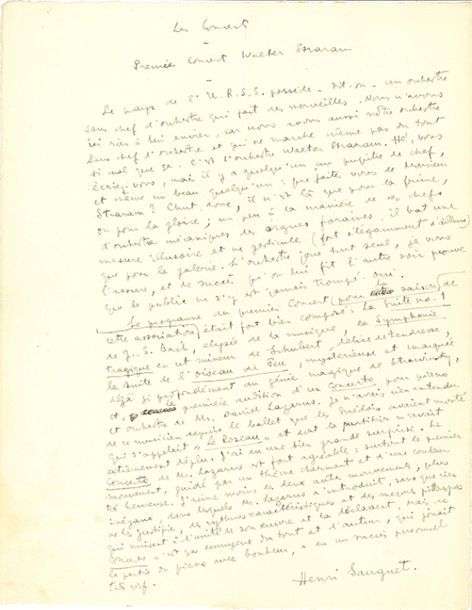 Les Concerts
-
Premier Concert Walter Straram
Le pays de l'U.R.S.S. possède - dit-on - un orchestre
sans chef d'orchestre qui fait des merveilles. Nous n'avons
ici rien à lui envier, car nous avons aussi notre orchestre
sans chef d'orchestre et qui ne marche même pas du tout
si mal que ça. C'est l'orchestre Walter Straram. Hé, vous
écriez-vous, mais il y a quelqu'un au pupitre de chef,
et même un beau quelqu'un : que faites-vous de Monsieur
Straram ? Chut donc, il n'est là que pour la frime,
ou pour la gloire ; un peu à la manière de ces chefs
d'orchestre mécaniques des orgues foraines. Il bat une
mesure illusoire et ne gesticule (fort élégamment d'ailleurs)
que pour la galerie. L'orchestre joue tout seul, je vous
l'assure, et le succès qu'on lui fit l'autre soir prouve
que le public ne s'y est jamais trompé. Oui.
Le programme du premier Concert (pour la saison) de
cette association était fort bien composé : la Suite no. 1
de J. S. Bach, élysée de la musique, la Symphonie
tragique en ut mineur de Schubert, délice de tendresse,
la Suite de l'Oiseau de Feu, mystérieuse et marquée
déjà si profondément du génie magique de Strawinsky,
et, la première audition d'un Concerto pour piano
et orchestre de Mr. David Lazarus. Je n'avais rien entendu
de ce musicien depuis le ballet que les Suédois avaient monté
qui s'appelait "Le Roseau" et dont la partition m'avait
entièrement déplu. J'ai eu une bien grande surprise. Le
Concerto de Mr. Lazarus est fort agréable ; surtout le premier
mouvement, guidé par un thème charmant et d'une couleur
très heureuse. J'aime moins les deux autres mouvements, plus
inégaux, dans lesquels Mr. Lazarus a introduit, sans que rien
ne les justifie, des rythmes caractéristiques et des mesures
qui nuisent à l'unité de son œuvre et la
Concerto n'est pas ennuyeux du tout et l'auteur, qui jouait
la partie du piano avec bonheur, a eu un succès personnel
très vif.
Henri Sauguet.